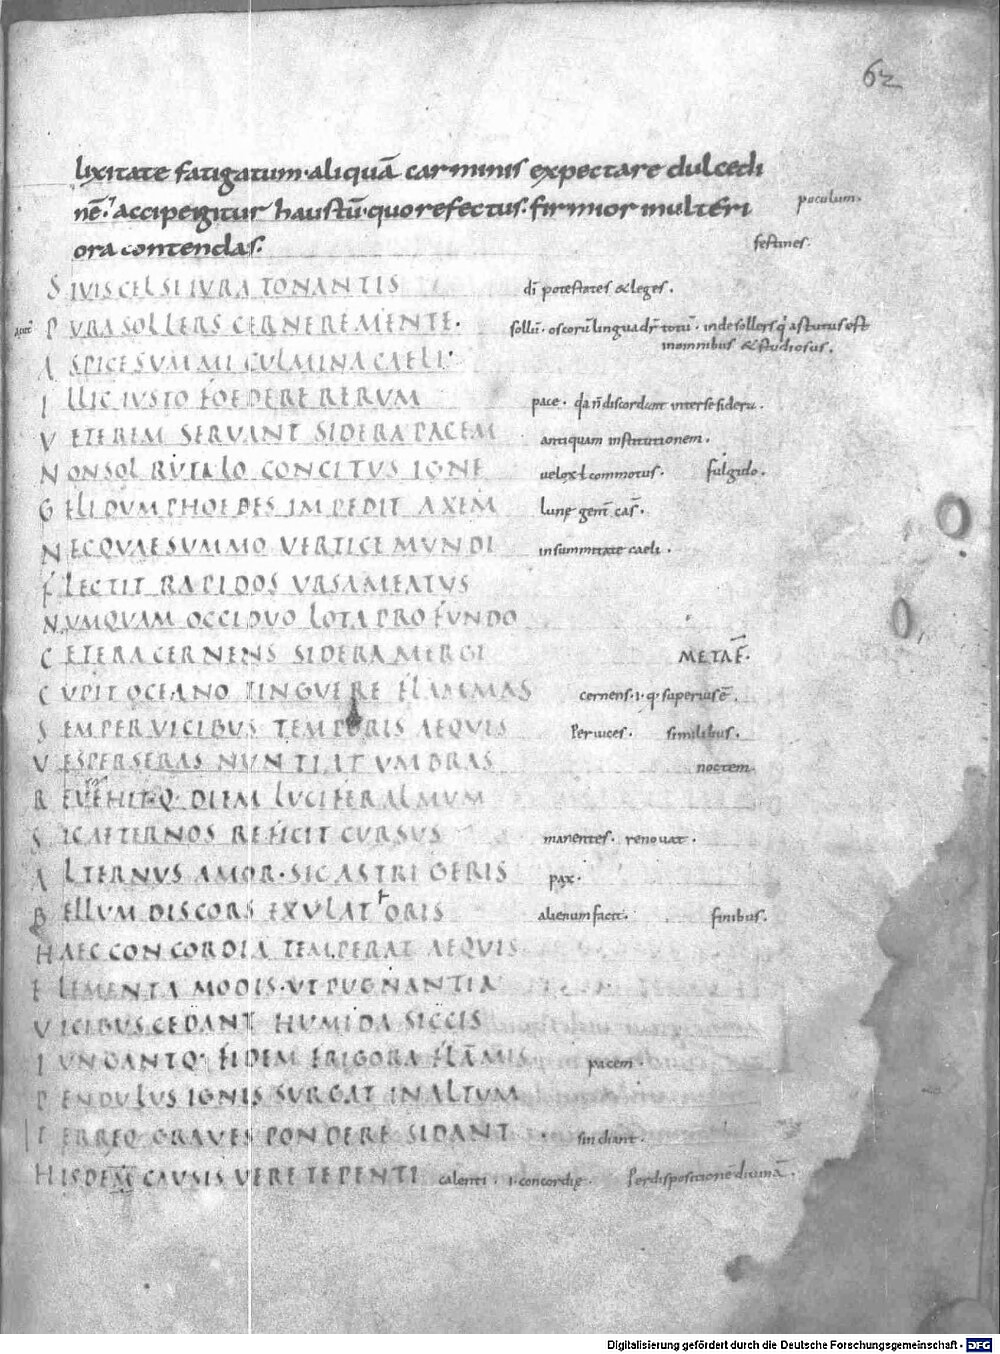 62
lixitate fatigatum · aliquā carminis expectare dulcedi
nē · accipe igitur haustū · quo refectus · firmior in ulteri
poculum ·
ora contendas ·
festines ·
SI VIS CELSI IVRA TONANTIS
di potestates & leges ·
PVRA SOLLERS CERNERE MENTE ·
sollū · oscorū lingua dr totū · inde sollers q̇ astutus est
in omnibus & studiosus ·
ASPICE SVMMI CVLMINA CAELI ·
ILLIC IVSTO FOEDERE RERVM
pace · qa n̄ discordant inter se sidera ·
VETEREM SERVANT SIDERA PACEM
antiquam institutionem ·
NON SOL RVTILO CONCITVS IGNE
uelox ł commotus · fulgido ·
GELIDVM PHOEBES IMPEDIT AXEM
lunę gen̄t cas̄ ·
NEC QVAE SVMMO VERTICE MVNDI
in summitate caeli ·
FLECTIT RAPIDOS VRSA MEATVS
NVMQVAM OCCIDVO LOTA PROFVNDO
CETERA CERNENS SIDERA MERGI
METAF̄ ·
CVPIT OCEANO TINGVERE FLAMMAS
cernens · i · q · superius ē ·
SEMPER VICIBVS TEMPORIS AEQVIS
per uices · similibus ·
VESPER SERAS NVNTIAT VMBRAS
noctem ·
REVEHITQ · DIEM LVCIFER ALMVM
SIC AETERNOS REFICIT CVRSVS
manentes · renouat ·
ALTERNVS AMOR · SIC ASTRIGERIS
pax ·
BELLVM DISCORS EXVLAT ORIS
alienum facit · finibus ·
HAEC CONCORDIA TEMPERAT AEQVIS
ELEMENTA MODIS · VT PVGNANTIA
VICIBVS CEDANT HVMIDA SICCIS
IVNGANTQ · FIDEM FRIGORA FLĀMIS
pacem ·
PENDVLVS IGNIS SVRGAT IN ALTVM
TERREQ GRAVES PONDERE SIDANT
sindiant ·
HISDEM CAVSIS VERE TEPENTI
calenti · i · concordię · per dispositionē diuinā ·
Digitalisierung gefördert durch die Deutsche Forschungsgemeinschaft - DFG